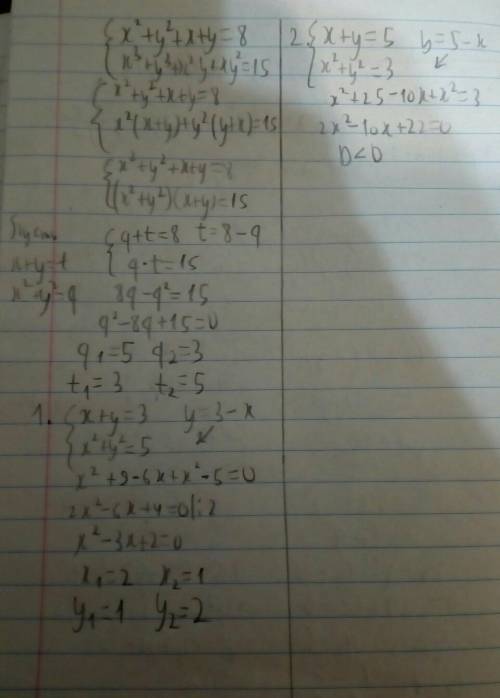 {x²+y²+x+y=8
x³+y³+x²y+xy²=15
{x²+y²+x+y=8
x²(x+y)+y²(y+x)=15
{x²+y²+x+y=8
(x²+y²)(x+y)=15
Пусть
x+y=t
x²+y²=q
{q+t=8 t=8-q
q·t=15
8q-q²=15
q²-8q+15=0
q₁=5 q₂=3
t₁=3 t₂=5
1. {x+y=3 y=3-x
x²+y²=5 ↙
x²+9-6x+x²-5=0
2x²-6x+4=0|:2
x²-3x+2=0
x₁=2 x₂=1
y₁=1 y₂=2
2 {x+y=5 y=5-x
x²+y²=3 ↙
x²+25-10x+x²=3
2x²-10x+22=0
D<0